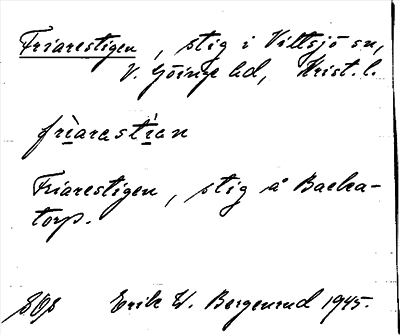 Friarestigen, stig i Vittsjö sn,
V. Göinge hd, Krist. l.
friarastian
Friarestigen, stig å Backa-
torp.
Erik W. Bergenrud 1945.